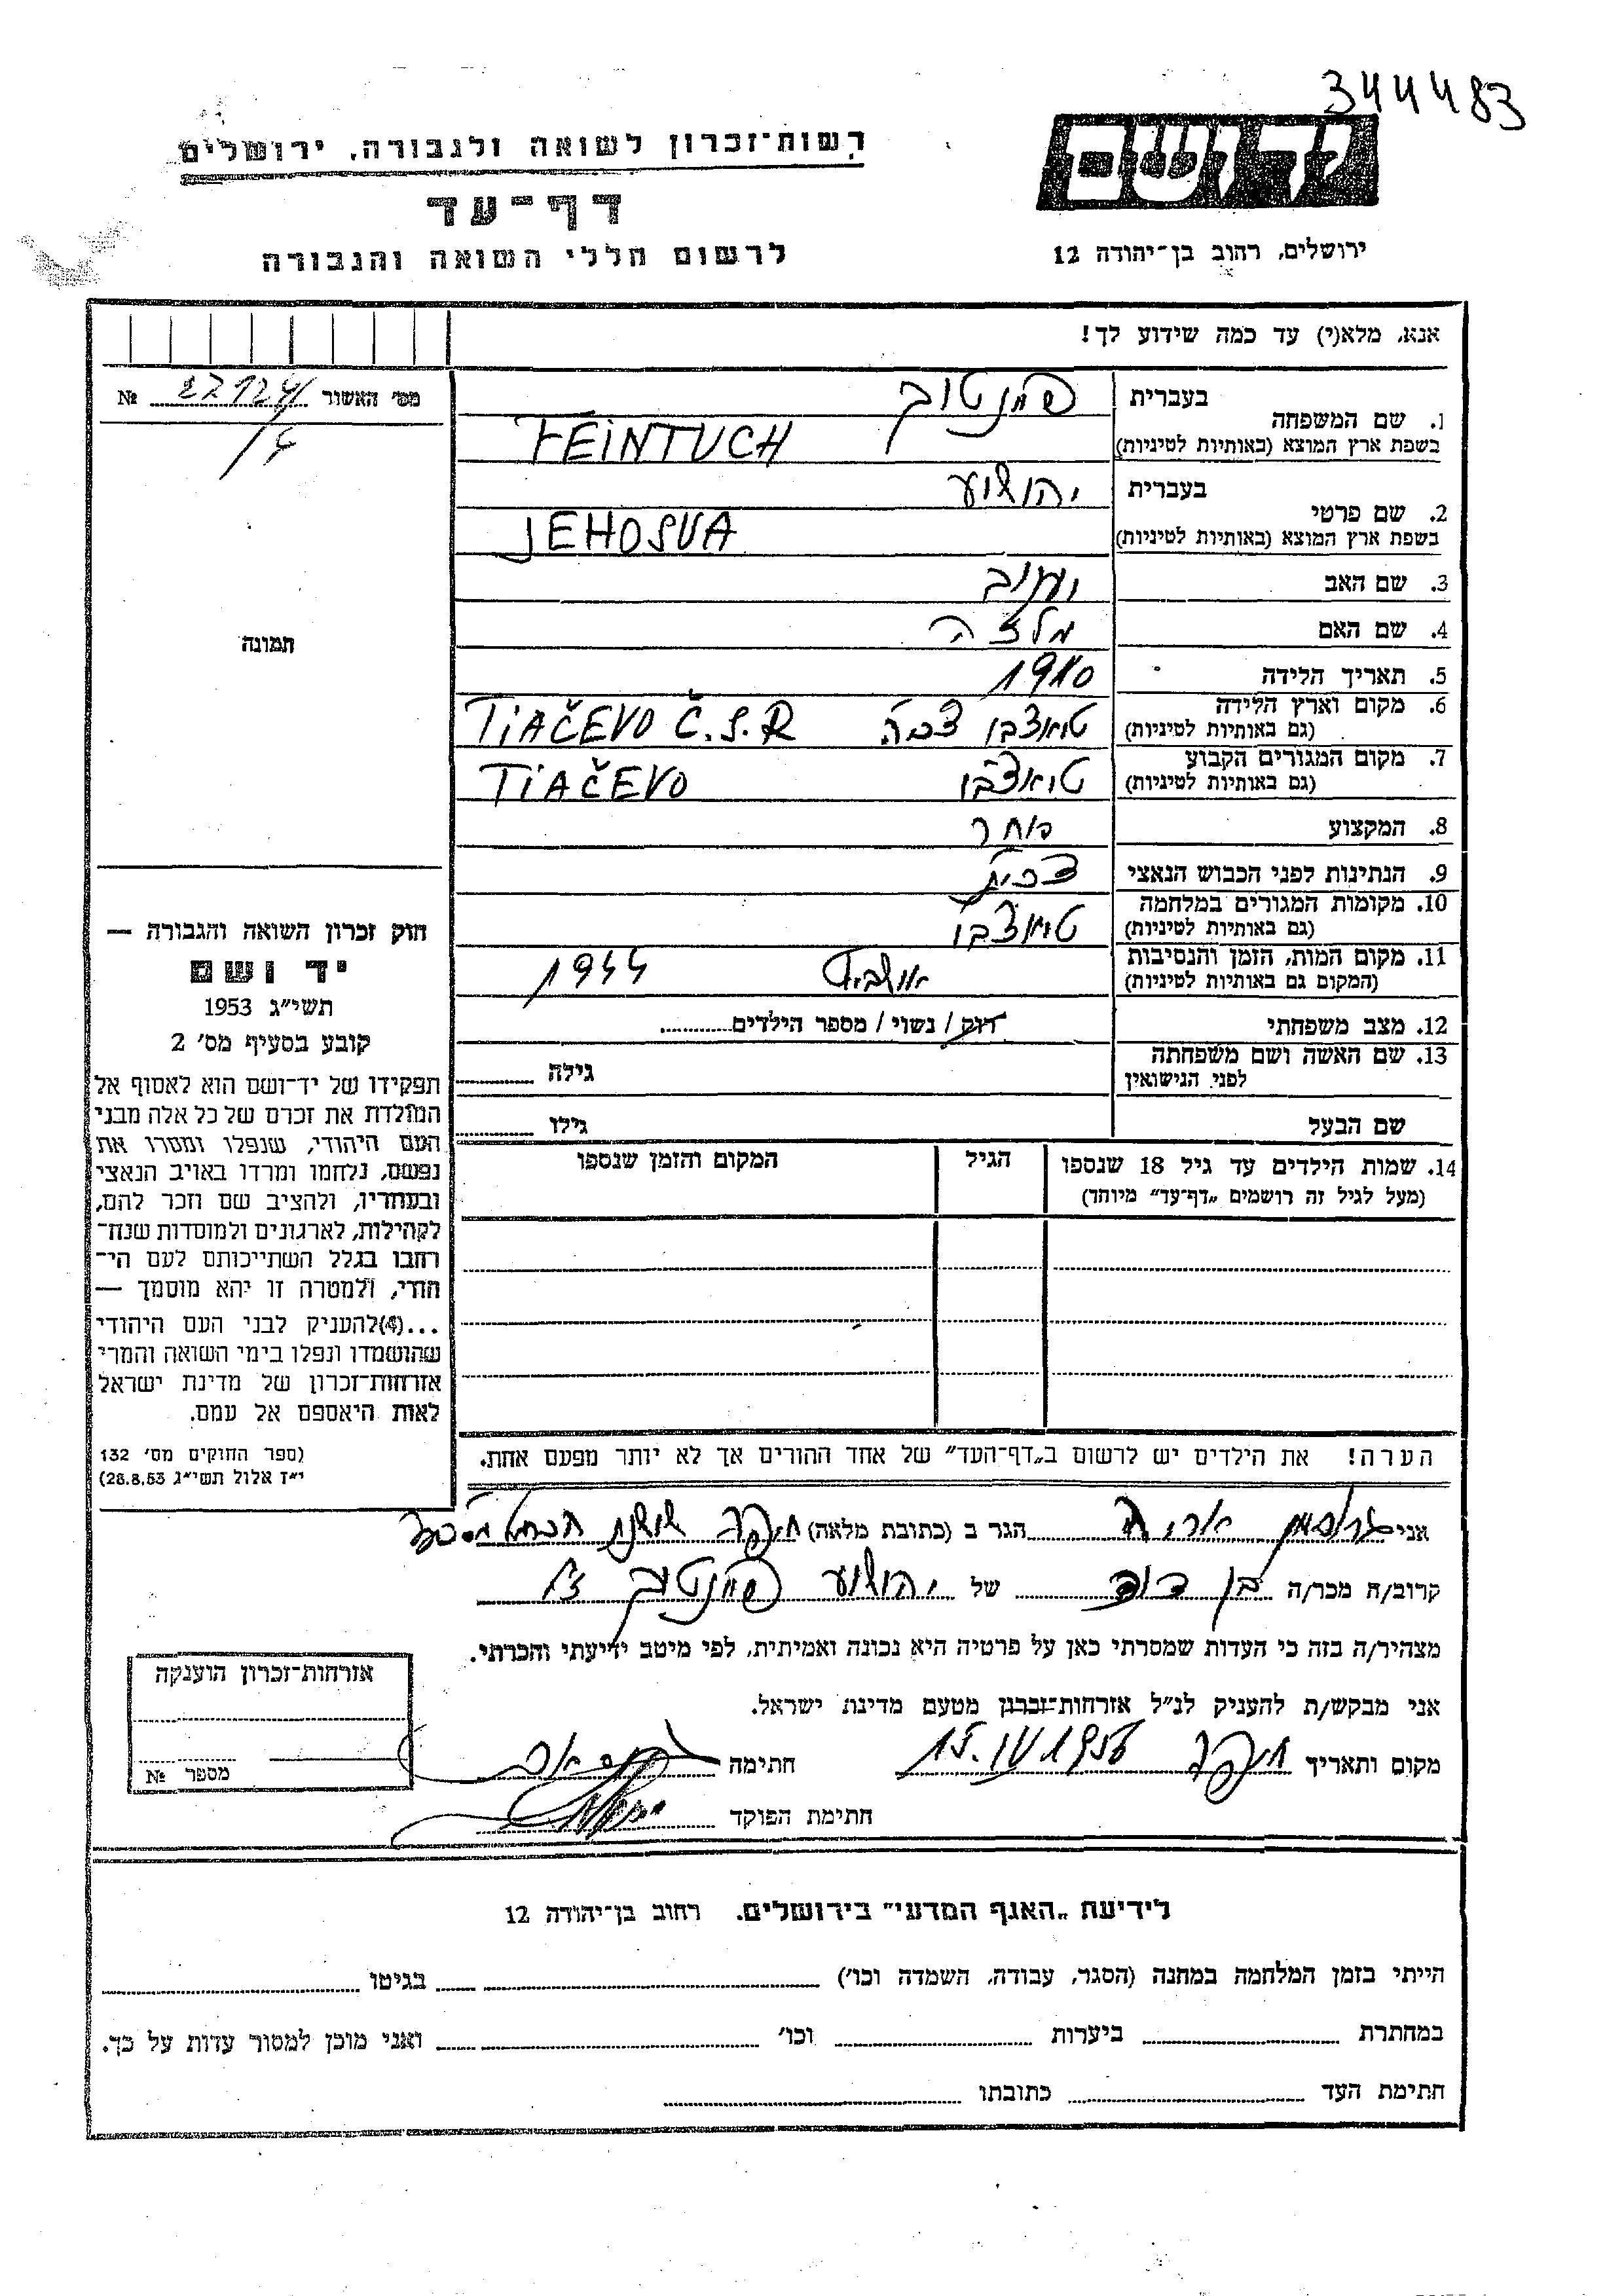 344483
רשות־זכרון לשואה ולגבורה, ירושלים
יד ושם
דף־עד
ירושלים, רחוב בן־יהודה 12
לרשום חללי השואה והגבורה
אנא, מלא(י) עד כמה שידוע לך!
מס׳ האשור № 27124/
1. שם המשפחה
בעברית
בשפת ארץ המוצא (באותיות לטיניות) FEINTUCH
2. שם פרטי
בעברית יהושוע
בשפת ארץ המוצא (באותיות לטיניות) JEHOSUA
3. שם האב יעקוב
4. שם האם
5. תאריך הלידה 1910
6. מקום וארץ הלידה
(גם באותיות לטיניות) טיאצבו צכיה TIAČEVO Č.S.R
7. מקום המגורים הקבוע
(גם באותיות לטיניות) טיאצבו TIAČEVO
8. המקצוע סוחר
9. הנתינות לפני הכבוש הנאצי צכית
10. מקומות המגורים במלחמה
(גם באותיות לטיניות) טיאצבו
11. מקום המות, הזמן והנסיבות
(המקום גם באותיות לטיניות) 1944
12. מצב משפחתי רוק / נשוי / מספר הילדים
13. שם האשה ושם משפחתה
לפני הנישואין גילה
שם הבעל גילו
14. שמות הילדים עד גיל 18 שנספו הגיל המקום והזמן שנספו
(מעל לגיל זה רושמים „דף־עד” מיוחד)
הערה! את הילדים יש לרשום ב„דף־העד” של אחד ההורים אך לא יותר מפעם אחת.
תמונה
חוק זכרון השואה והגבורה —
יד ושם
תשי״ג 1953
קובע בסעיף מס׳ 2
תפקידו של יד־ושם הוא לאסוף אל
המולדת את זכרם של כל אלה מבני
העם היהודי, שנפלו ומסרו את
נפשם, נלחמו ומרדו באויב הנאצי
ובעוזריו, ולהציב שם וזכר להם,
לקהילות, לארגונים ולמוסדות שנח־
רבו בגלל השתייכותם לעם הי־
הודי, ולמטרה זו יהא מוסמך —
...(4) להעניק לבני העם היהודי
שהושמדו ונפלו בימי השואה והמרי
אזרחות־זכרון של מדינת ישראל
לאות היאספם אל עמם.
(ספר החוקים מס׳ 132
י״ז אלול תשי״ג 28.8.53)
אני אריה הגר ב (כתובת מלאה)
קרוב/ה מכר/ה בן דוד של יהושוע פיינטוך ז״ל
מצהיר/ה בזה כי העדות שמסרתי כאן על פרטיה היא נכונה ואמיתית, לפי מיטב ידיעתי והכרתי.
אני מבקש/ת להעניק לנ״ל אזרחות־זכרון מטעם מדינת ישראל.
מקום ותאריך 15.IV 1956 חתימה
חתימת הפוקד
אזרחות־זכרון הוענקה
מספר №
לידיעת „האגף המדעי” בירושלים. רחוב בן־יהודה 12
הייתי בזמן המלחמה במחנה (הסגר, עבודה, השמדה וכו׳) בגיטו
במחתרת ביערות וכו׳ ואני מוכן למסור עדות על כך.
חתימת העד כתובתו